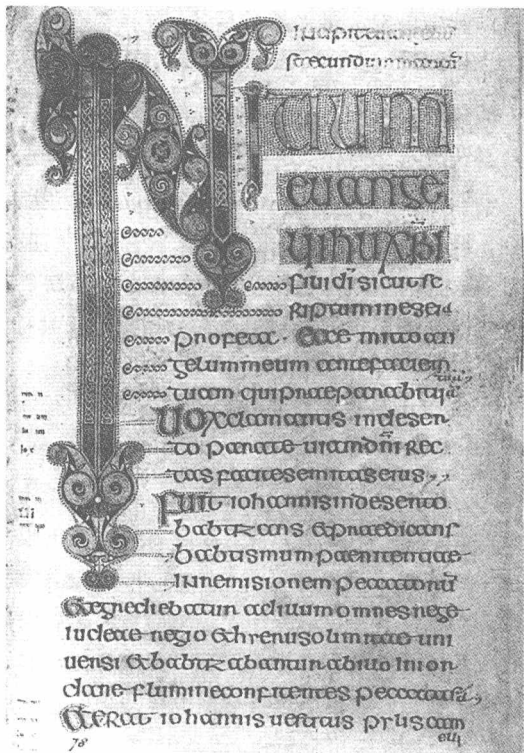 INITIUM
euange
lii ihu xpi
filii di sicut sc
riptum in esei
profeta · Ecce mitto an
gelum meum ante faciem
tuam qui praeparabit
Uox clamantis in deser
to parate uiam dni rec
tas facite semitas eius
Fuit iohannis in deserto
babtizans & praedicans
babtismum paenitentiae
in remisionem peccatorū
& egrediebatur ad illum omnes rege
iudeae regio & hierusolimitae uni
uersi & babtizabantur ab illo in ior
dane flumine confitentes peccata sā
& erat iohannis uestitus pylis cam
eli
78